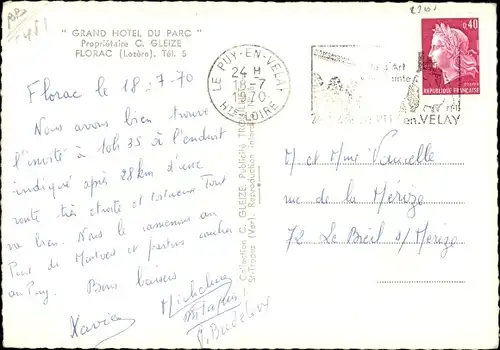 " GRAND HOTEL DU PARC "
Propriétaire C. GLEIZE
FLORAC (Lozère). Tél. 5
Florac le 18-7-70
Nous avons bien trouvé
l'invité à 10h35 à l'endroit
indiqué après 28km d'une
route très étroite et tortueuse Tout
va bien. Nous le ramenons au
Puy de et partons
au Puy. Bons baisers
Xavier
Micheline
Collection C. GLEIZE, Publicité
St-Tropez (Var). Reproduction
LE PUY-EN-VELAY
24 H
18-7
1970
HTE-LOIRE
d'Art
en VELAY
0,40
REPUBLIQUE FRANÇAISE
M et Mme Vaucelle
rue de la Mérize
72 Le Breil s/Mérize